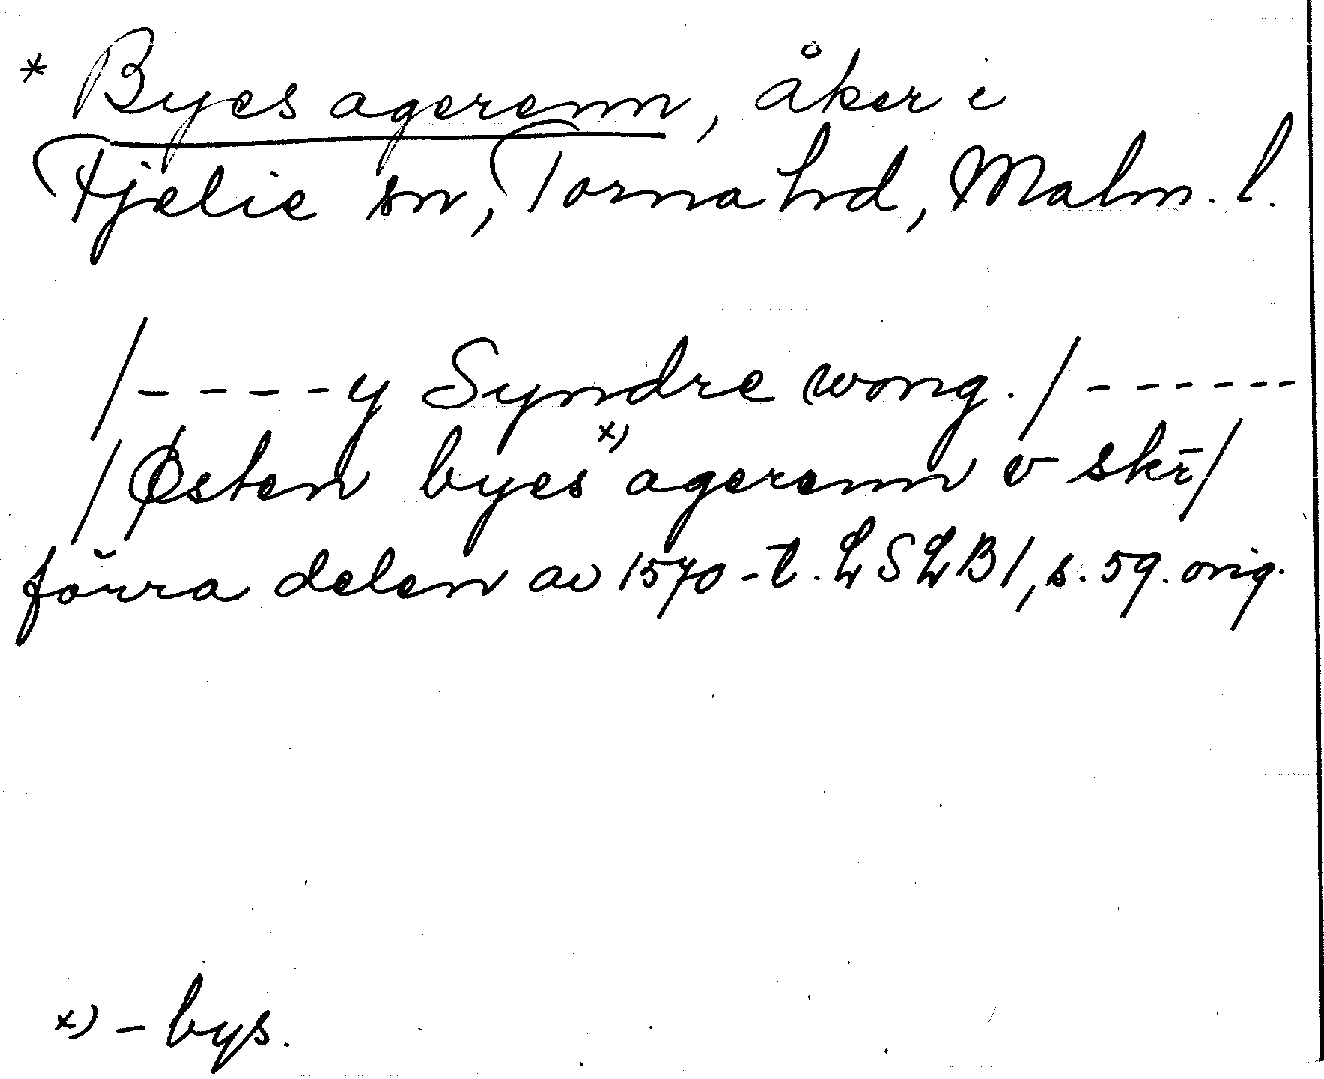 * Byes agerenn, åker i
Fjelie sn, Torna hd, Malm. l.
/- - - - y Syndre wong. / - - - - - -
/Østen byes x) agerenn v skr̄/
förra delen av 1570-t. LSLB1, s. 59. orig.
x) - bys.